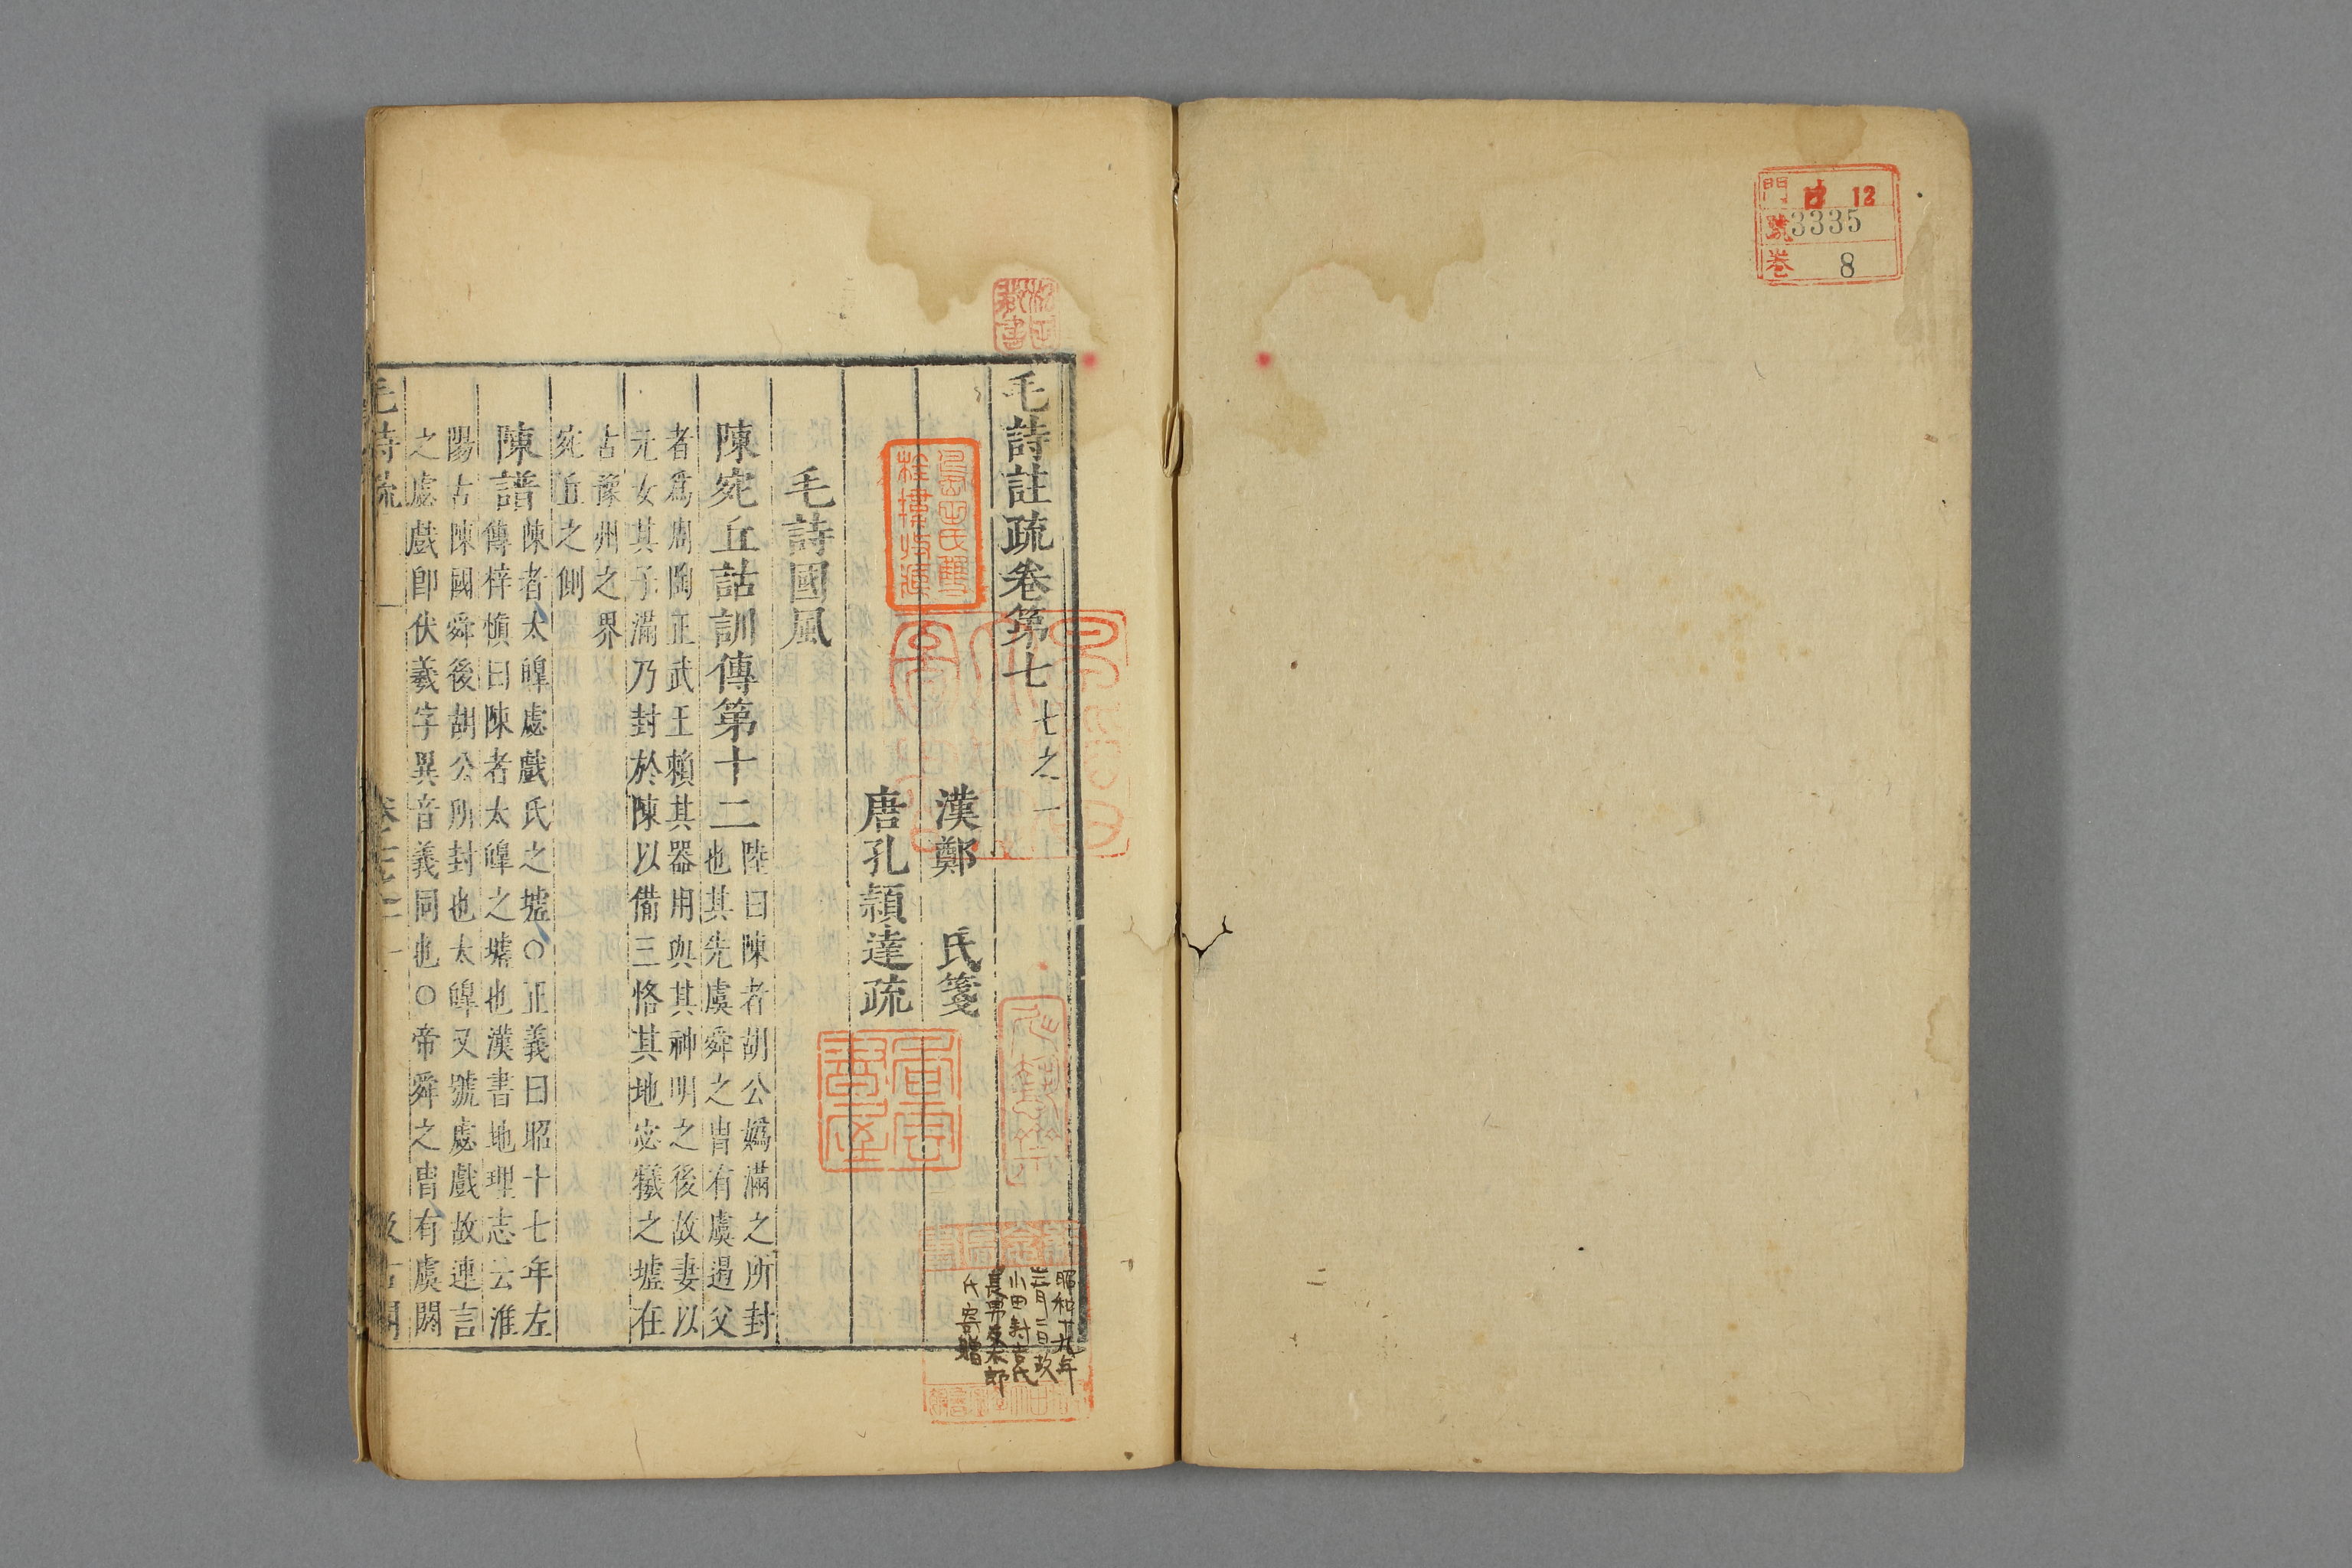 門 12
號 3335
巻 8
毛詩註疏卷第七 七之一
漢鄭 氏箋
唐孔頴達疏
毛詩國風
陳宛丘詁訓傳第十二
陸曰陳者胡公嬀滿之所封
也其先虞舜之胄有虞遏父
者爲周陶正武王賴其器用與其神明之後故妻以
元女其子滿乃封於陳以備三恪其地宓犧之墟在
古豫州之界
宛丘之側
陳譜
陳者太皥虙戲氏之墟○正義曰昭十七年左
傳梓愼曰陳者太皥之墟也漢書地理志云淮
陽古陳國舜後胡公所封也太皥又號虙戲故連言
之虙戲卽伏羲字異音義同也○帝舜之胄有虞閼
毛詩疏
昭和十九年
三月二日故
小田 吉氏
長男 太郎
氏寄贈